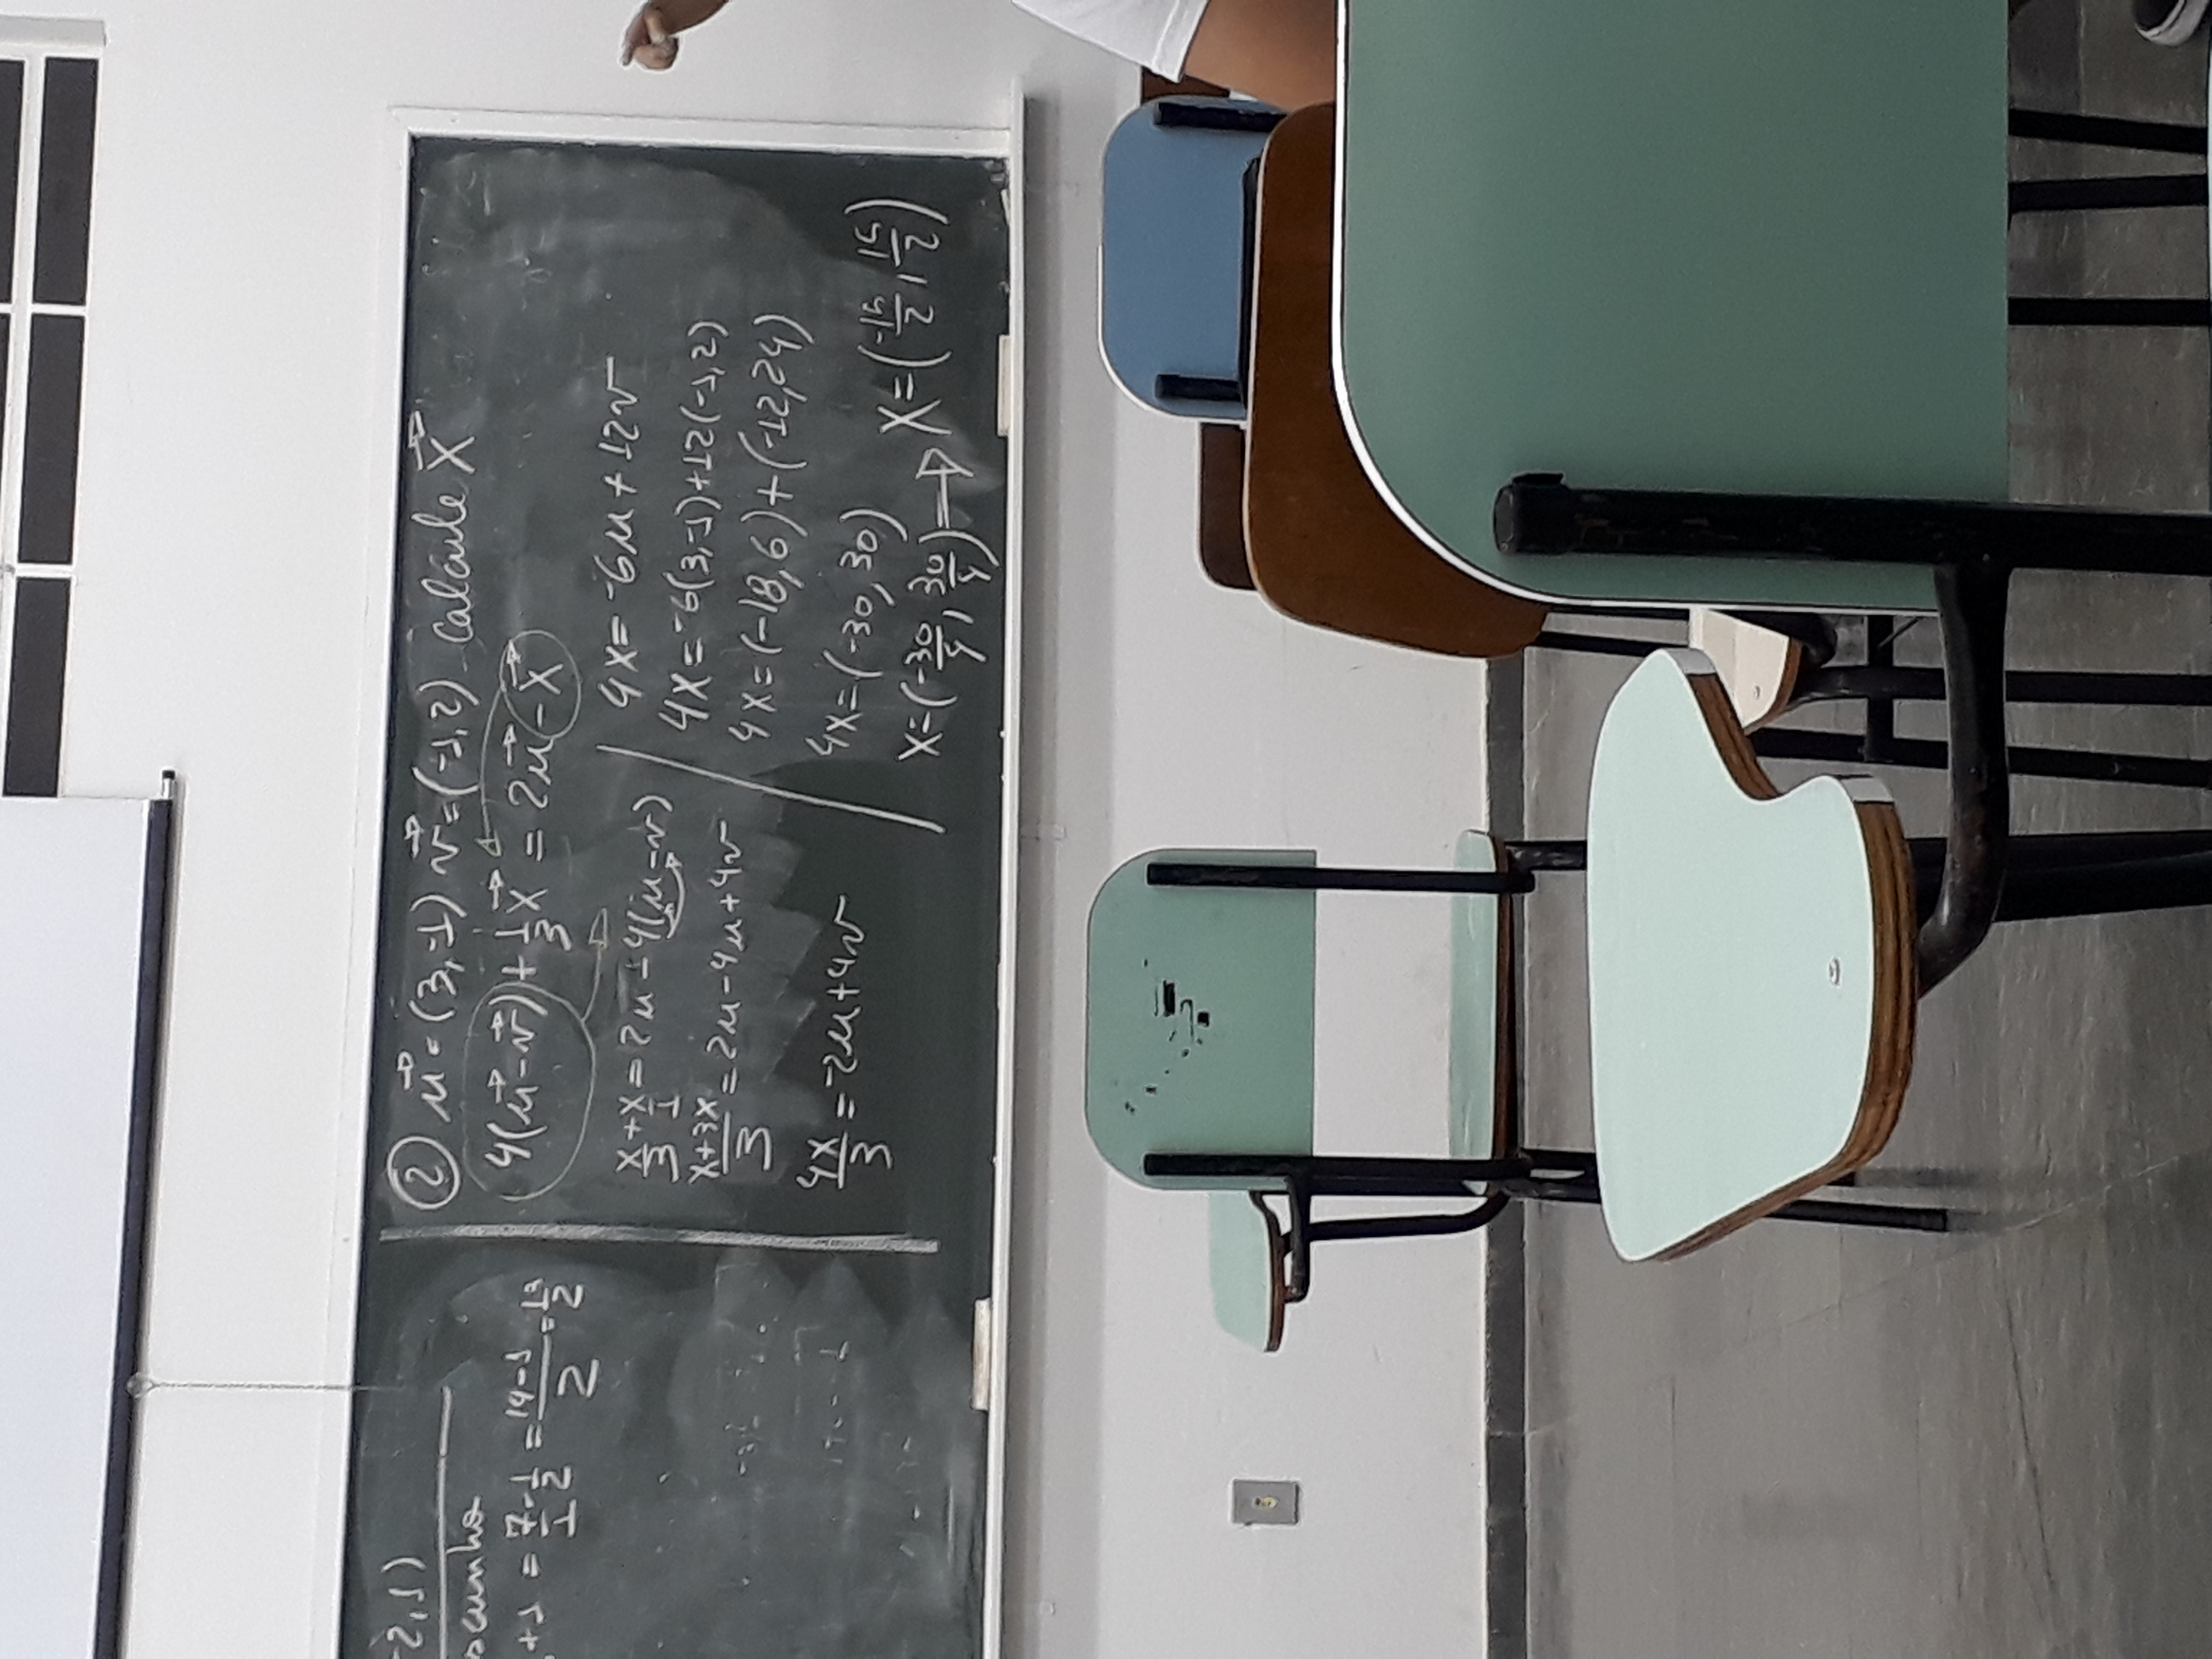 -2,1)
+1 = 7/1 - 1/2 = 14-1/2 = 13/2
② u⃗ = (3,-1) v⃗ = (-1,2) calcule X⃗
4(u⃗-v⃗) + 1/3 X⃗ = 2u⃗ - X⃗
x/3 + x/1 = 2u - 4(u-v)
x+3x/3 = 2u-4u+4v
4x/3 = -2u+4v
4x = -6u + 12v
4x = -6(3,-1)+12(-1,2)
4x = (-18,6)+(-12,24)
4x = (-30,30)
x = (-30/4, 30/4) ⇒ X = (-15/2, 15/2)